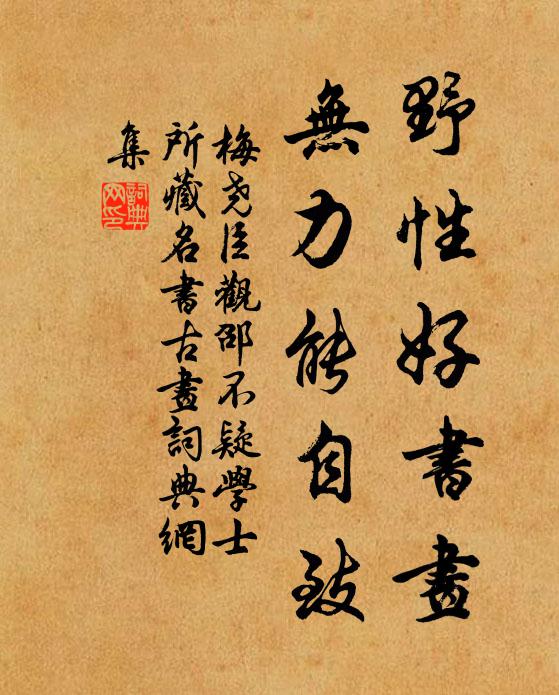 野性好書畫
無力能自致
梅堯臣觀邵不疑學士
所藏名書古畫詞典網
集
詞典
网印